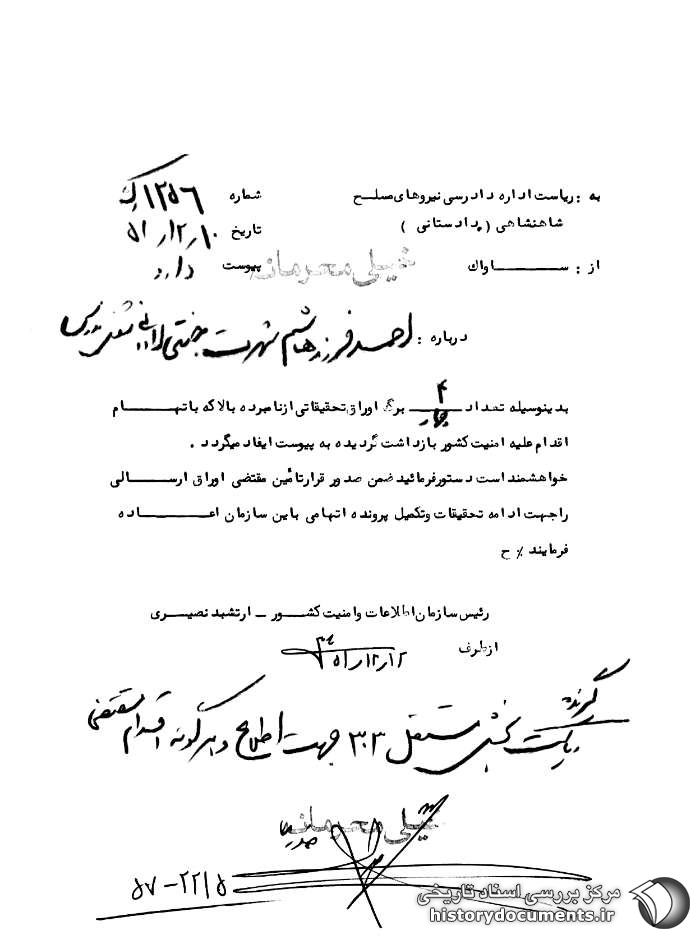 به : ریاست اداره دادرسی نیروهای مسلح
شماره ۱۲۵۶
شاهنشاهی ( دادستانی )
تاریخ ۱۰ر۱۲ر۵۱
از : ســـاواك
پیوست دارد
خیلی محرمانه
درباره : احمد فرزند هاشم شهرت
بدینوسیله تعداد ۴ چهار برگ اوراق تحقیقاتی از نامبرده بالا که باتهـــام
اقدام علیه امنیت کشور بازداشت گردیده به پیوست ایفاد میگردد .
خواهشمند است دستور فرمائید ضمن صدور قرار تأمین مقتضی اوراق ارســالی
را جهت ادامه تحقیقات وتکمیل پرونده اتهامی باین سازمان اعـــاده
فرمایند ٪ ح
رئیس سازمان اطلاعات وامنیت کشـــور ــ ارتشبد نصیــری
از طرف
۱۲ر۱۲ر۵۱
گیرنده
ریاست بخش مستقل ۳۰۳ جهت اطلاع و هر گونه اقدام مقتضی
خیلی محرمانه
۵۷-۲۲/۵
مرکز بررسی اسناد تاریخی
historydocuments.ir